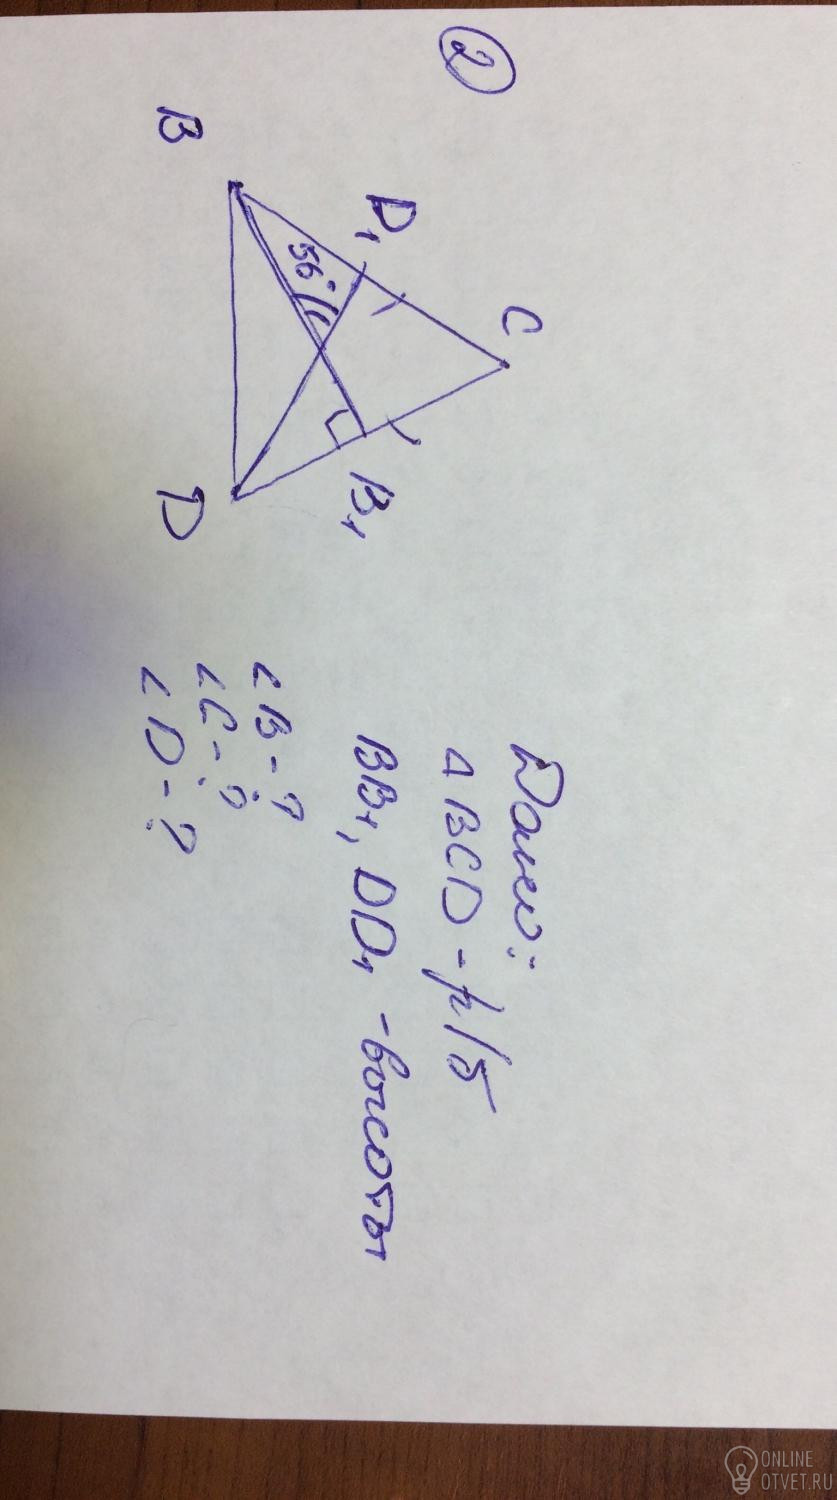 2
C
D₁
B₁
56°
B
D
Дано:
△BCD - р/б
BB₁, DD₁ - высоты
∠B - ?
∠C - ?
∠D - ?
ONLINE
OTVET.RU